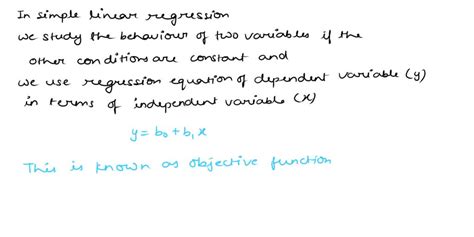 In simple linear regression
we study the behaviour of two variables if the
other conditions are constant and
we use regression equation of dependent variable (y)
in terms of independent variable (x)
y = b₀ + b₁x
This is known as objective function